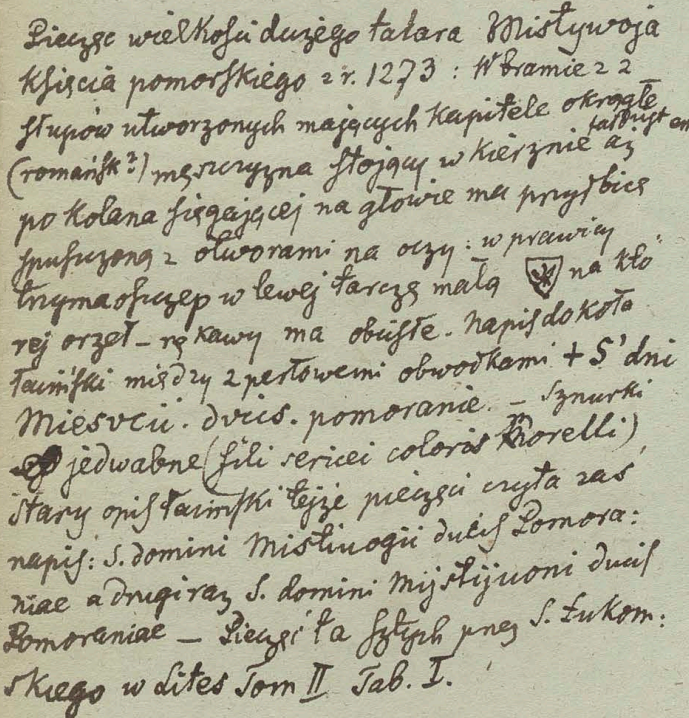 Pieczęć wielkości dużego talara Mistywoja
Księcia pomorskiego z r. 1273: W bramie z 2
słupów utworzonych mających kapitele okrągłe
(romańsk?) męszczyzna stojący w kierznie aż
po kolana sięgającej na głowie ma przyłbicę
spuszczoną z otworami na oczy: w prawicy
trzyma oszczep w lewej tarczę małą na któ
rej orzeł – rękawy ma obcisłe. Napis dokoła
łaciński między 2 perłowemi obwodkami + S' dni
Miesvcii. dvcis. pomoranie. – Sznurki
jedwabne (fili sericei coloris Morelli)
stary opis łaciński tejże pieczęci czyta zaś
napis: S. domini Mistiuogii ducis Pomora:
niae a drugi raz S. domini Mystijuoni ducis
Pomoraniae – Pieczęć ta sztych przez S. Łukom:
skiego w Lites Tom II Tab. I.